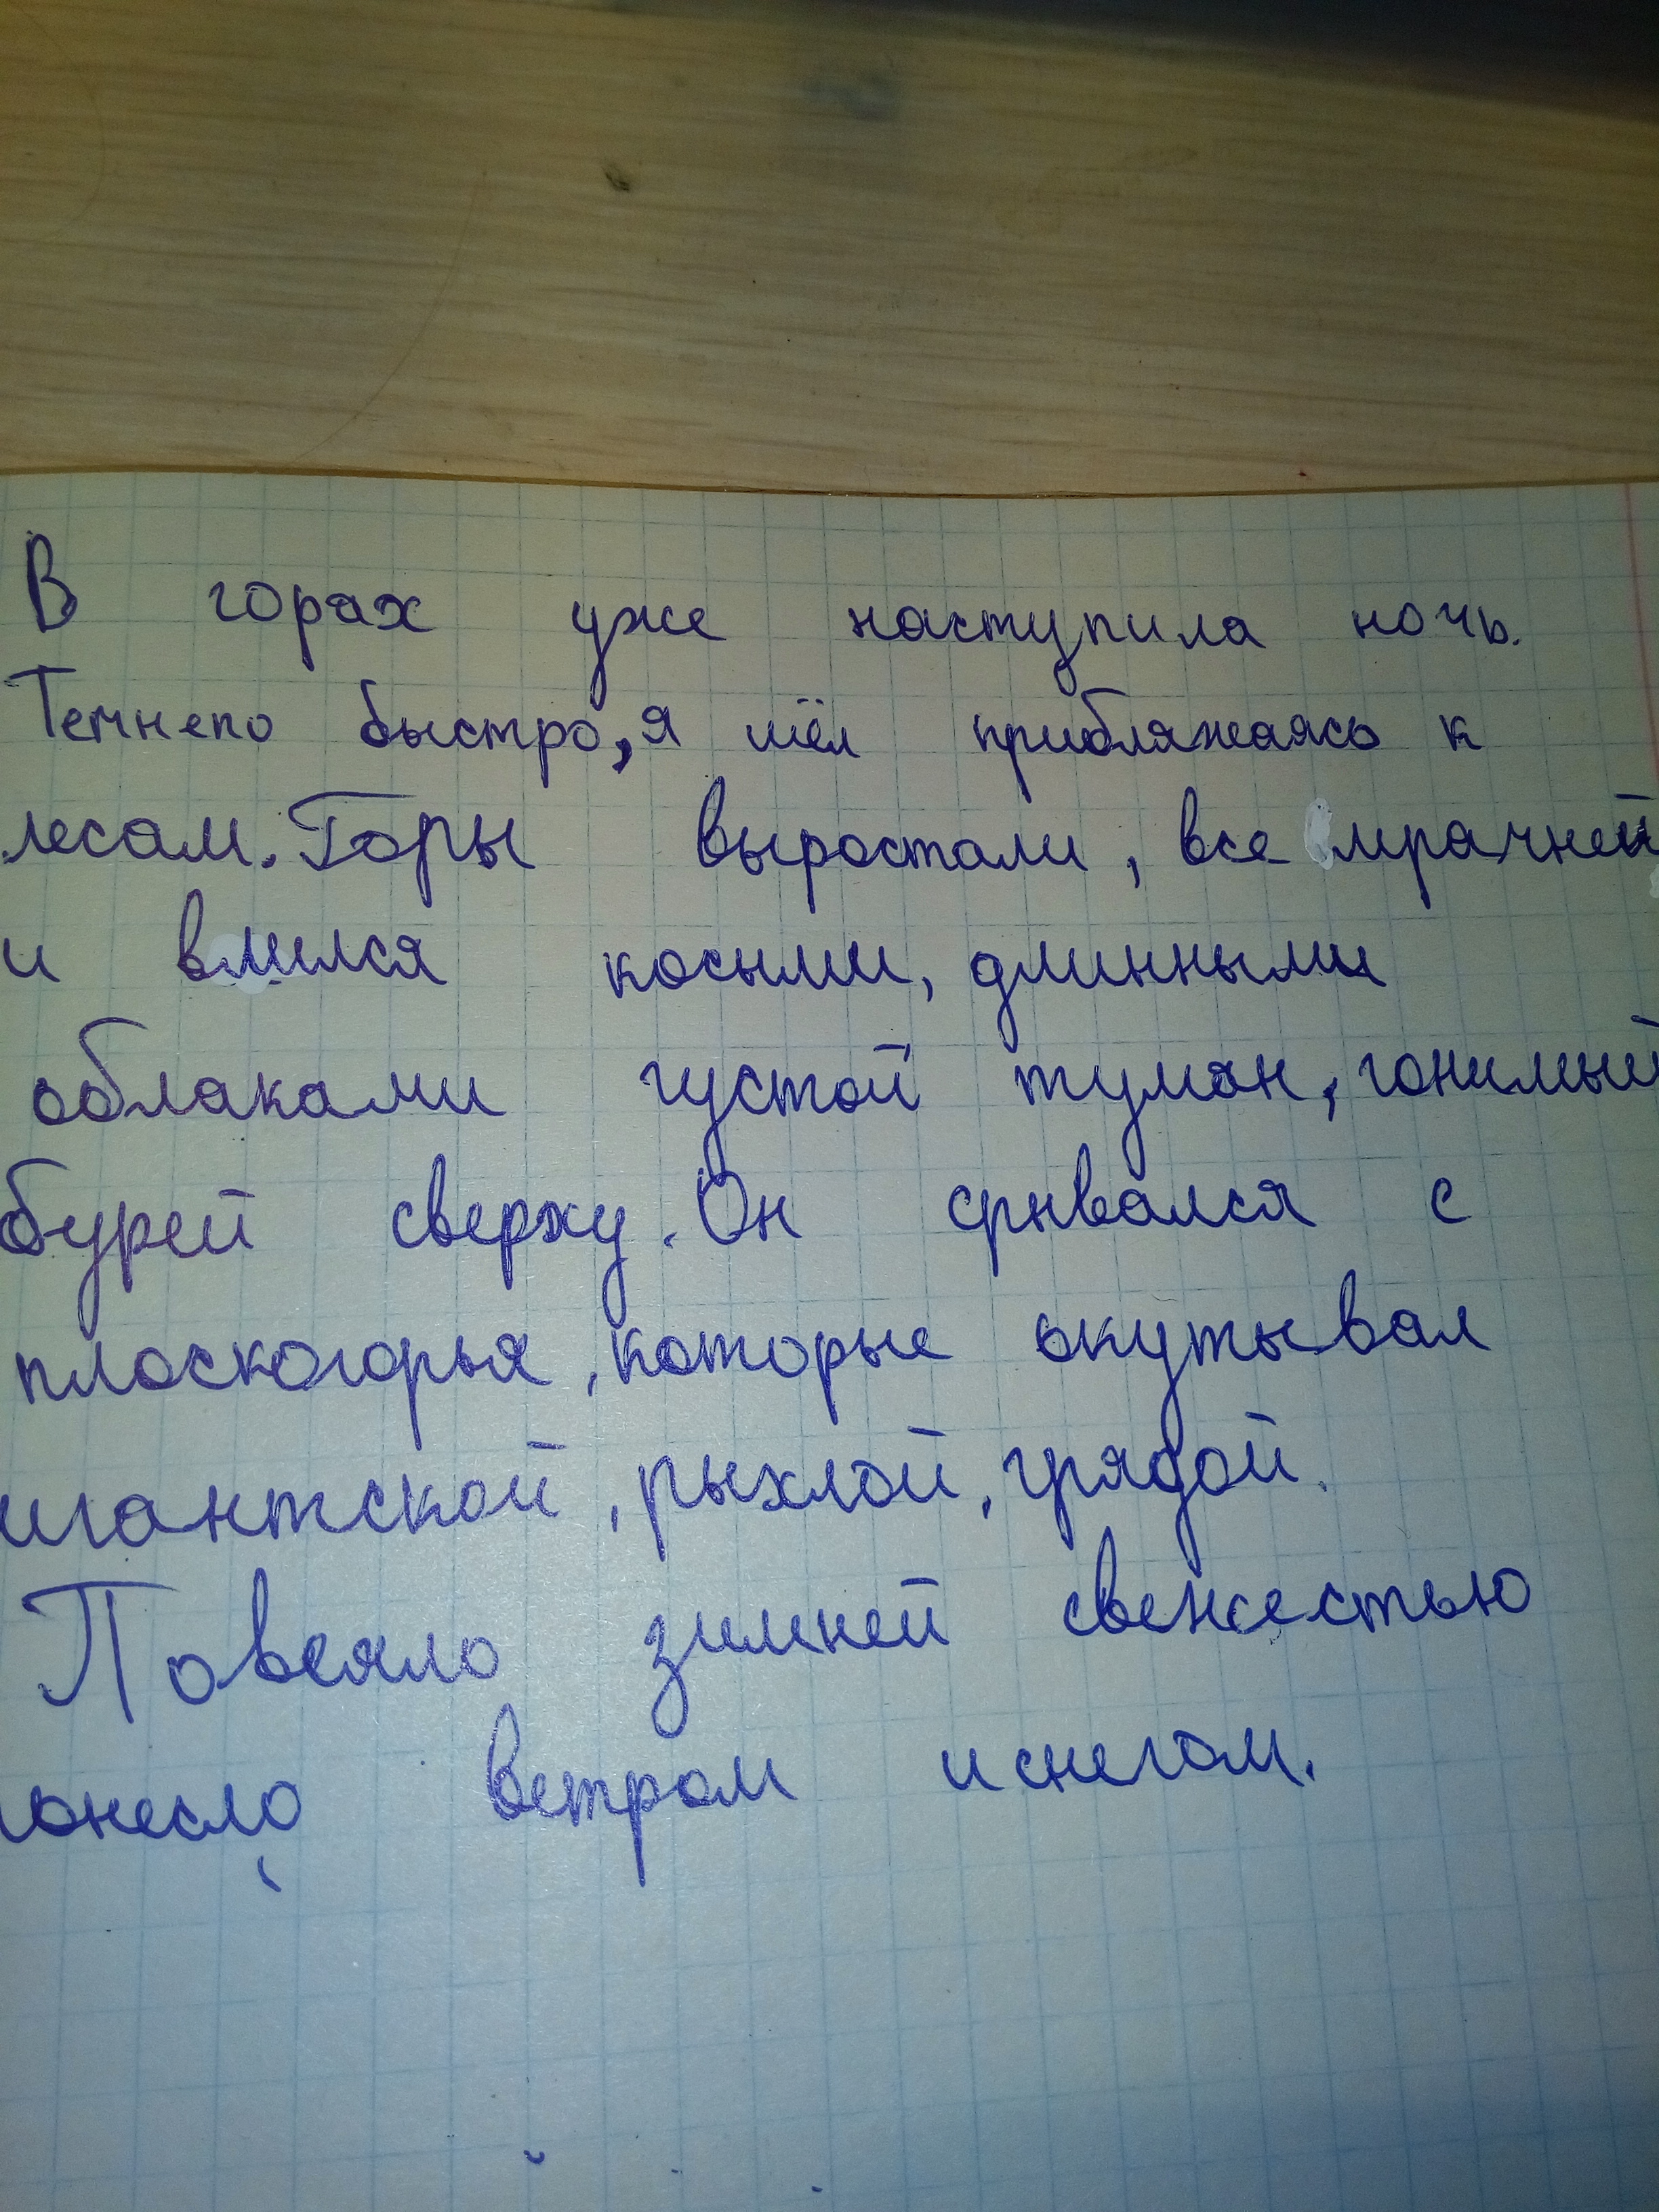 В горах уже наступила ночь.
Темнело быстро, я шёл прибляжаясь к
лесам. Горы выростали, все мрачней
и вмился косыми, длинными
облаками густой туман, гонимый
бурей сверху. Он срывался с
плоскогорья, которые окутывал
игантской, рыхлой, грядой.
Повеяло зимней свежестью
понесло ветром и снегом.